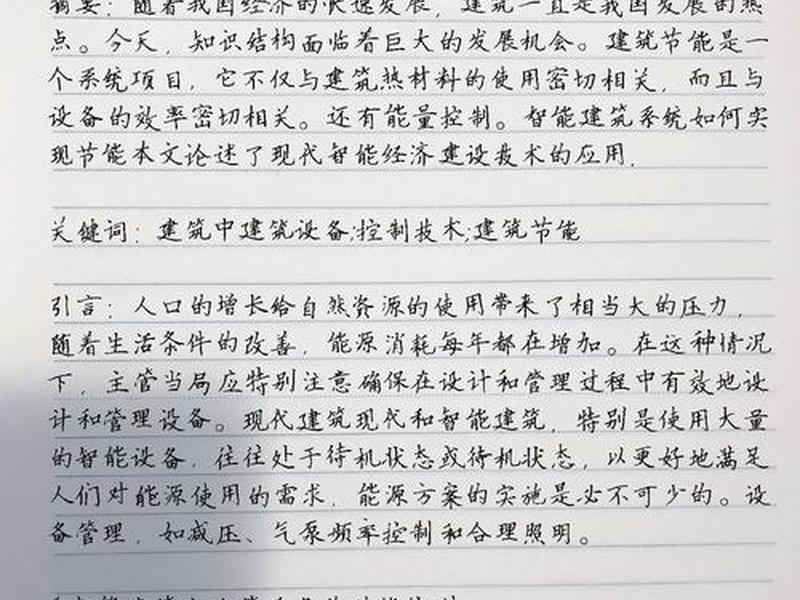 摘要：随着我国经济的快速发展，建筑一直是我国发展的热
点。今天，知识结构面临着巨大的发展机会。建筑节能是一
个系统项目，它不仅与建筑热材料的使用密切相关，而且与
设备的效率密切相关。还有能量控制。智能建筑系统如何实
现节能本文论述了现代智能经济建设技术的应用．
关键词：建筑中建筑设备;控制技术;建筑节能
引言：人口的增长给自然资源的使用带来了相当大的压力，
随着生活条件的改善，能源消耗每年都在增加。在这种情况
下，主管当局应特别注意确保在设计和管理过程中有效地设
计和管理设备。现代建筑现代和智能建筑，特别是使用大量
的智能设备，往往处于待机状态或待机状态，以更好地满足
人们对能源使用的需求，能源方案的实施是必不可少的。设
备管理，如减压、气泵频率控制和合理照明。